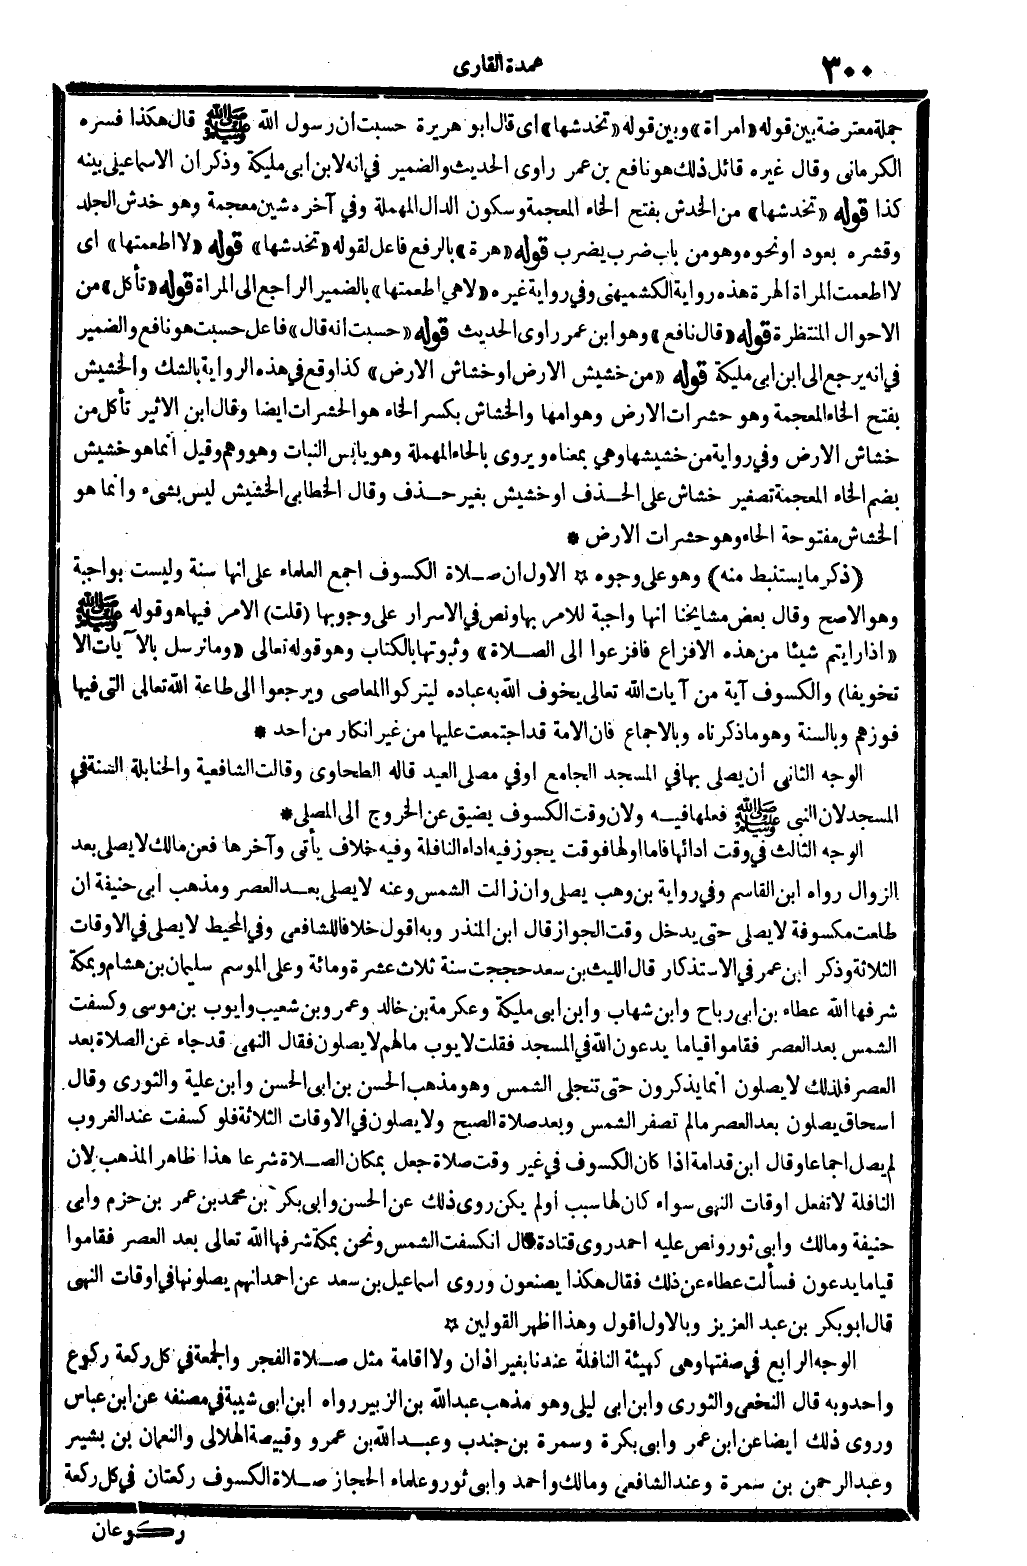 عمدة القارى
٣٠٠
جملة معترضة بين قوله «امراة» وبين قوله «تخدشها» اى قال ابو هريرة حسبت ان رسول الله ﷺ قال هكذا فسره
الكرمانى وقال غيره قائل ذلك هو نافع بن عمر راوى الحديث والضمير في انه لابن ابى مليكة وذكر ان الاسماعيلى بينه
كذا قوله «تخدشها» من الخدش بفتح الخاء المعجمة وسكون الدال المهملة وفي آخره شين معجمة وهو خدش الجلد
وقشره بعود او نحوه وهو من باب ضرب يضرب قوله «هرة» بالرفع فاعل لقوله «تخدشها» قوله «لا اطعمتها» اى
لا اطعمت المراة الهرة هذه رواية الكشميهنى وفي رواية غيره «لا هي اطعمتها» بالضمير الراجع الى المراة قوله «تأكل» من
الاحوال المنتظرة قوله «قال نافع» وهو ابن عمر راوى الحديث قوله «حسبت انه قال» فاعل حسبت هو نافع والضمير
في انه يرجع الى ابن ابى مليكة قوله «من خشيش الارض او خشاش الارض» كذا وقع في هذه الرواية بالشك والخشيش
بفتح الخاء المعجمة وهو حشرات الارض وهوامها والخشاش بكسر الخاء هو الحشرات ايضا وقال ابن الاثير تأكل من
خشاش الارض وفي رواية من خشيشها وهي بمعناه ويروى بالحاء المهملة وهو يابس النبات وهو وهم وقيل انما هو خشيش
بضم الخاء المعجمة تصغير خشاش على الحذف او خشيش بغير حذف وقال الخطابى الخشيش ليس بشىء وانما هو
الخشاش مفتوحة الخاء وهو حشرات الارض *
(ذكر ما يستنبط منه) وهو على وجوه ✩ الاول ان صلاة الكسوف اجمع العلماء على انها سنة وليست بواجبة
وهو الاصح وقال بعض مشايخنا انها واجبة للامر بها ونص في الاسرار على وجوبها (قلت) الامر فيها هو قوله ﷺ
«اذا رايتم شيئا من هذه الافزاع فافزعوا الى الصلاة» وثبوتها بالكتاب وهو قوله تعالى «وما نرسل بالآيات الا
تخويفا) والكسوف آية من آيات الله تعالى يخوف الله به عباده ليتركوا المعاصى ويرجعوا الى طاعة الله تعالى التى فيها
فوزهم وبالسنة وهو ما ذكرناه وبالاجماع فان الامة قد اجتمعت عليها من غير انكار من أحد *
الوجه الثانى أن يصلى بها في المسجد الجامع او في مصلى العيد قاله الطحاوى وقالت الشافعية والحنابلة السنة في
المسجد لان النبى ﷺ فعلها فيه ولان وقت الكسوف يضيق عن الخروج الى المصلى *
الوجه الثالث في وقت ادائها فاما اولها فوقت يجوز فيه اداء النافلة وفيه خلاف يأتى وآخرها فعن مالك لا يصلى بعد
الزوال رواه ابن القاسم وفي رواية بن وهب يصلى وان زالت الشمس وعنه لا يصلى بعد العصر ومذهب ابى حنيفة ان
طلعت مكسوفة لا يصلى حتى يدخل وقت الجواز قال ابن المنذر وبه اقول خلافا للشافعى وفي المحيط لا يصلى في الاوقات
الثلاثة وذكر ابن عمر في الاستذكار قال الليث بن سعد حججت سنة ثلاث عشرة ومائة وعلى الموسم سليمان بن هشام وبمكة
شرفها الله عطاء بن ابى رباح وابن شهاب وابن ابى مليكة وعكرمة بن خالد وعمرو بن شعيب وايوب بن موسى وكسفت
الشمس بعد العصر فقاموا قياما يدعون الله في المسجد فقلت لايوب مالهم لا يصلون فقال النهى قد جاء عن الصلاة بعد
العصر فلذلك لا يصلون انما يذكرون حتى تنجلى الشمس وهو مذهب الحسن بن ابى الحسن وابن علية والثورى وقال
اسحاق يصلون بعد العصر مالم تصفر الشمس وبعد صلاة الصبح ولا يصلون في الاوقات الثلاثة فلو كسفت عند الغروب
لم يصل اجماعا وقال ابن قدامة اذا كان الكسوف في غير وقت صلاة جعل بمكان الصلاة شرعا هذا ظاهر المذهب لان
النافلة لا تفعل اوقات النهى سواء كان لها سبب أو لم يكن روى ذلك عن الحسن وابى بكر بن محمد بن عمر بن حزم وابى
حنيفة ومالك وابى ثور ونص عليه احمد روى قتادة قال انكسفت الشمس ونحن بمكة شرفها الله تعالى بعد العصر فقاموا
قياما يدعون فسألت عطاء عن ذلك فقال هكذا يصنعون وروى اسماعيل بن سعد عن احمد انهم يصلونها في اوقات النهى
قال ابو بكر بن عبد العزيز وبالاول اقول وهذا اظهر القولين ✩
الوجه الرابع في صفتها وهى كهيئة النافلة عندنا بغير اذان ولا اقامة مثل صلاة الفجر والجمعة في كل ركعة ركوع
واحد وبه قال النخعى والثورى وابن ابى ليلى وهو مذهب عبد الله بن الزبير رواه ابن ابى شيبة في مصنفه عن ابن عباس
وروى ذلك ايضا عن ابن عمر وابى بكرة وسمرة بن جندب وعبد الله بن عمرو وقبيصة الهلالى والنعمان بن بشير
وعبد الرحمن بن سمرة وعند الشافعى ومالك واحمد وابى ثور وعلماء الحجاز صلاة الكسوف ركعتان في كل ركعة
ركوعان